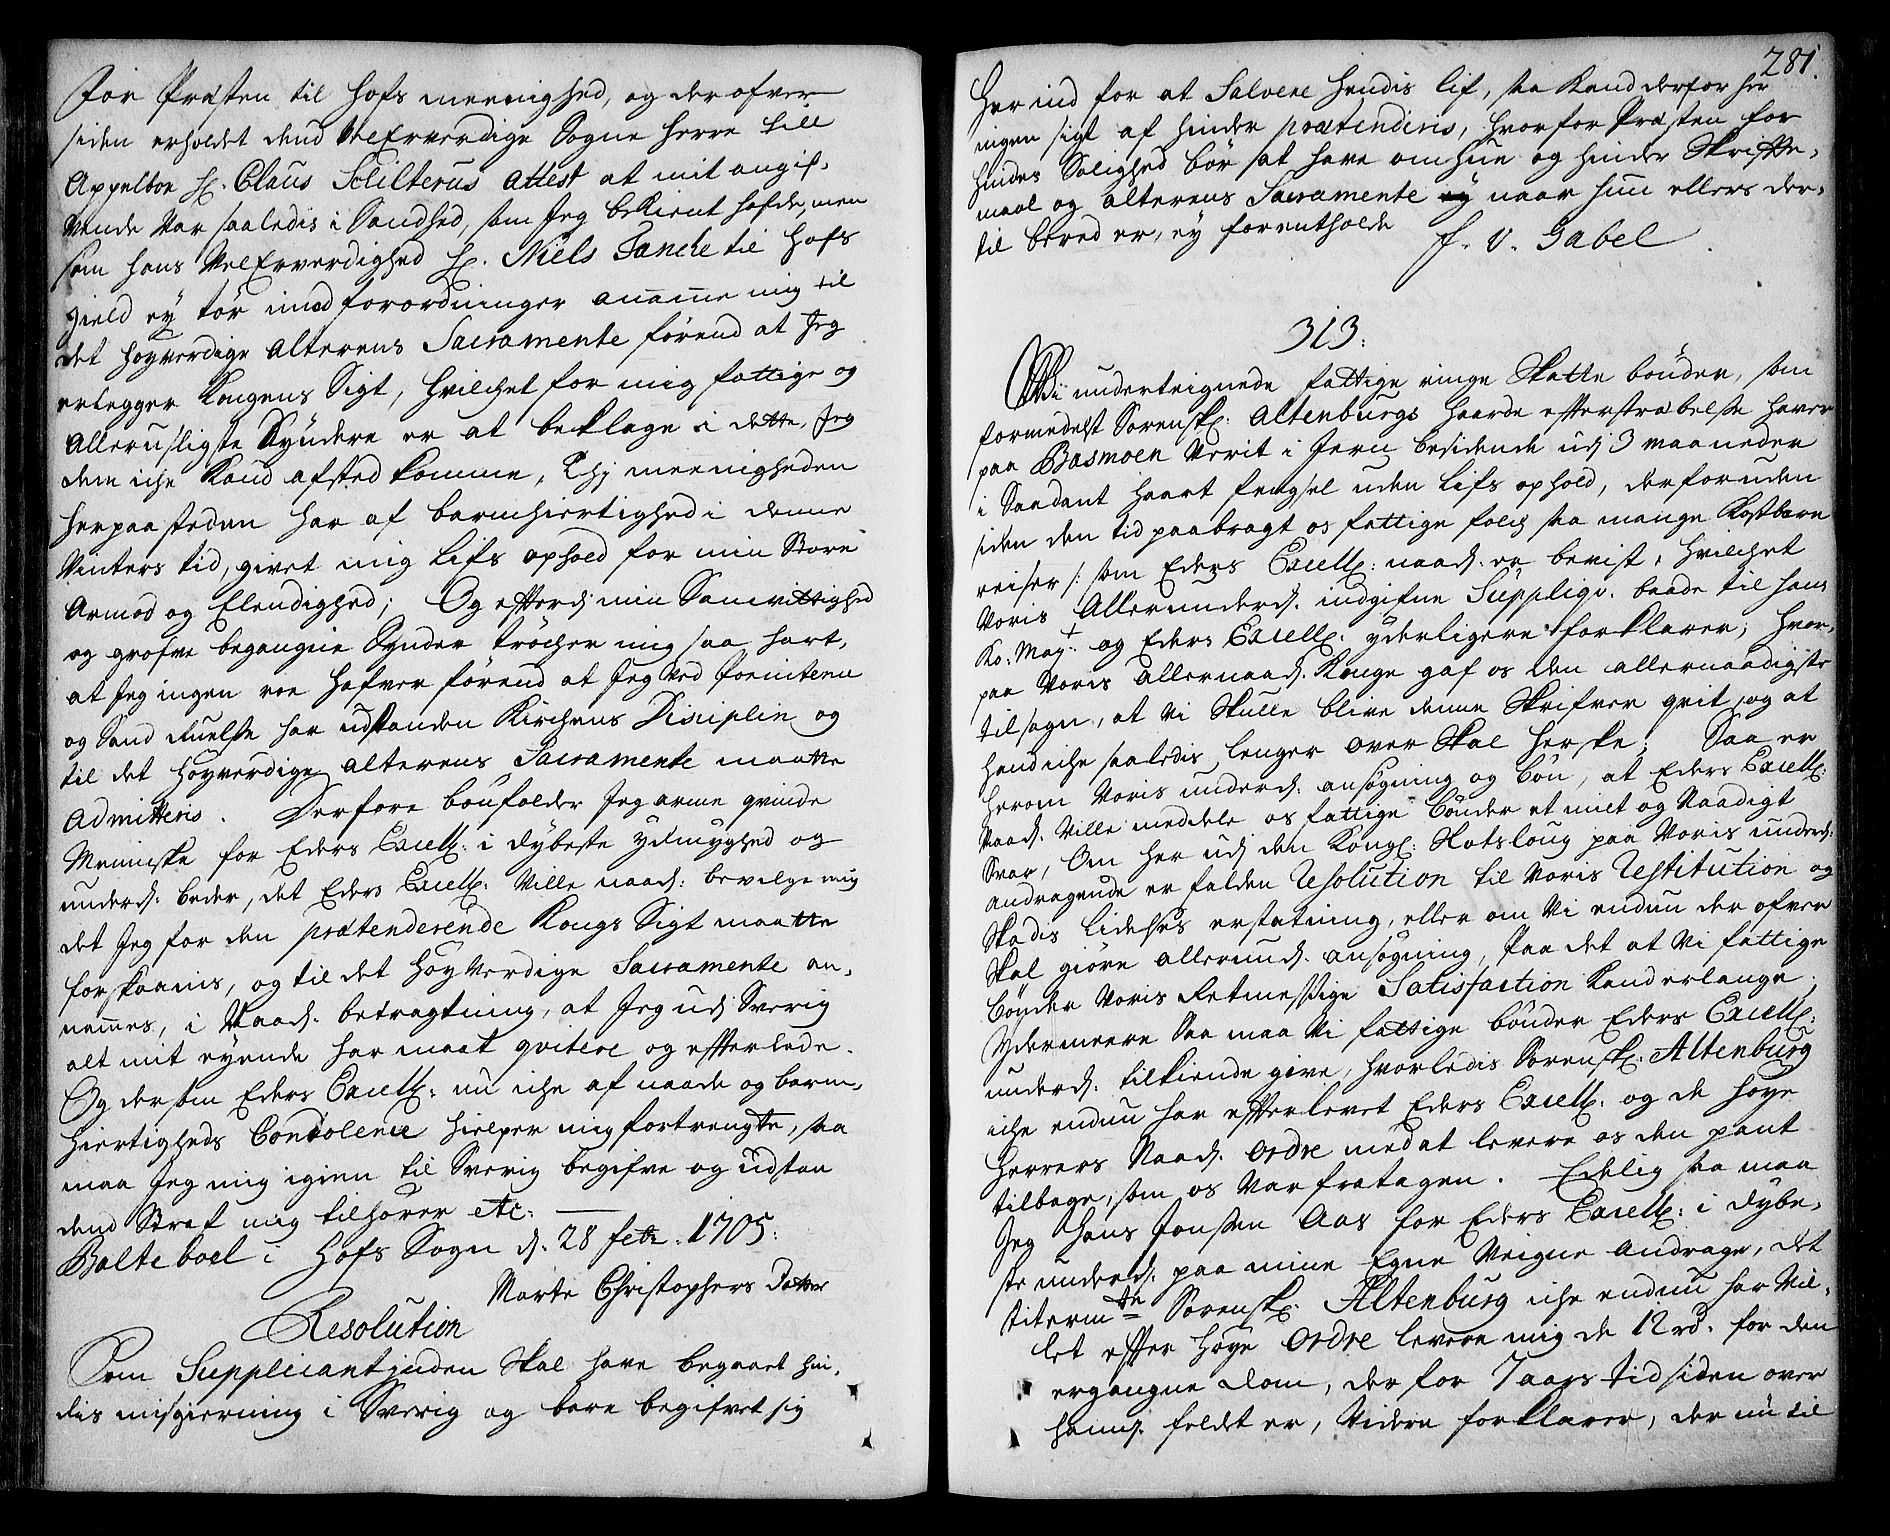 for Præsten til Hofs meenighed, og der ofver
siden erholdet dend VelErverdige Sogne Herre till
Appelboe Hr. Claus Schilterus attest at mit angif-
vende var saaledis i Sandhed, som Jeg bekient hafde, men
som hans VelErverdighed Hr. Niels Tanche til Hofs
gield ey tør imod forordninger anamme mig til
det høyverdige alterens Sacramente førend at Jeg
erlegger Kongens Sigt, hvilchet for mig fattige og
allerusligste Syndere er at beklage i dette, Jeg
dem iche kand afsted komme, Thj meenigheden
her paa steden har af barmhiertighed i denne
Vinters tid, givet mig Lifs ophold for min Store
Armod og Elendighed; Og efterdj min Samvittighed
og grofve begangne Synder trøcher mig saa hart,
at Jeg ingen roe hafver førend at Jeg ved Poenitence
og Sand Ruelse har udstanden Kirchens Disciplin og
til det høyverdige alterens Sacramente maatte
admitteris. Derfore bønfalder Jeg arme qvinde
Menniske for Eders Excell: i dybeste ydmyghed og
underd: beder, det Eders Excell: Ville naad: bevilge mig
det Jeg for den prætenderende Kongs Sigt maatte
forskaanis, og til det Høyverdige Sacramente an-
nammes, i Naad: betragtning, at Jeg udj Sverig
alt mit eyende har maat qvitere og efterlade.
Og dersom Eders Excell: nu iche af naade og barm-
hiertigheds Condolence hielper mig fortrengte, saa
maa Jeg mig igien til Sverig begifve og udstaa
dend Straf mig tilhører etc:
Balteboel i Hofs Sogn d. 28 febr. 1705.
Marte Christophers Datter
Resolution
Som Supplicantinden Skal have begaaet hin-
dis misgierning i Sverig og bare begifvet sig
281.
Her ind for at Salvere hendis lif, saa kand derfor her
ingen sigt af hinder prætenderis, hvorfor Præsten for
hindes Salighed bør at have omhue og hinder Skrifte-
maal og alterens Sacramente naar hun ellers der-
til bered er, ey forentholde
F. V. Gabel
313.
Wii underteignede fattige ringe Skatte bønder, som
formedelst Sorenskr: Altenburgs haarde efterstræbelse haver
paa Basmoen Verit i Jern besidende udj 3 maaneder
i Saadant haart fengsel uden lifs ophold, der foruden
siden den tid paabragt os fattige folch saa mange kostbare
reiser /: som Eders Excell: naad. er bevist, hvilchet
Voris allerunderd. indgifne Suppliqv. baade til hans
Ko: Mayt: og Eders Excell: yderligere forklarer; hvor-
paa Voris allernaad. Konge gaf os den allernaadigste
tilsagn, at Vi Skulle blive denne Skrifver qvit, og at
hand iche saaledis lenger over Skal herske; Saa er
herom Voris underd: ansøgning og bøn, at Eders Excell:
Naad. Ville meddele os fattige bønder et mildt og Naadigt
Svar, Om her udj den Kongl: Slotsloug paa Voris underd:
andragende er falden Resolution til Voris Restitution og
Skadis lidelses erstatning, eller om Vi endnu der ofver
Skal giøre allerund. ansøgning, Paa det at Vi fattige
bønder Voris Retmessige Satisfaction kand erlange.
Ydermeere Saa maa Vi fattige bønder Eders Excell:
underd: tilkiende give, hvorledis Sorenskr: Altenburg
iche endnu har efterlevet Eders Excell: og de høye
Herrers Naad. ordre med at levere os den pant
tilbage, som os Var fratagen. Edelig saa maa
Jeg Hans Jonssen Aas for Eders Excell: i dybe-
ste underd: paa mine Egne Veigne Andrage, det
titermte Sorenskr: Altenburg iche endnu har Vil-
let efter høye ordre levere mig de 12 rd. for den
ergangne Dom, der for 7 aars tid siden over
ham feldet er, Videre forklarer, der nu til